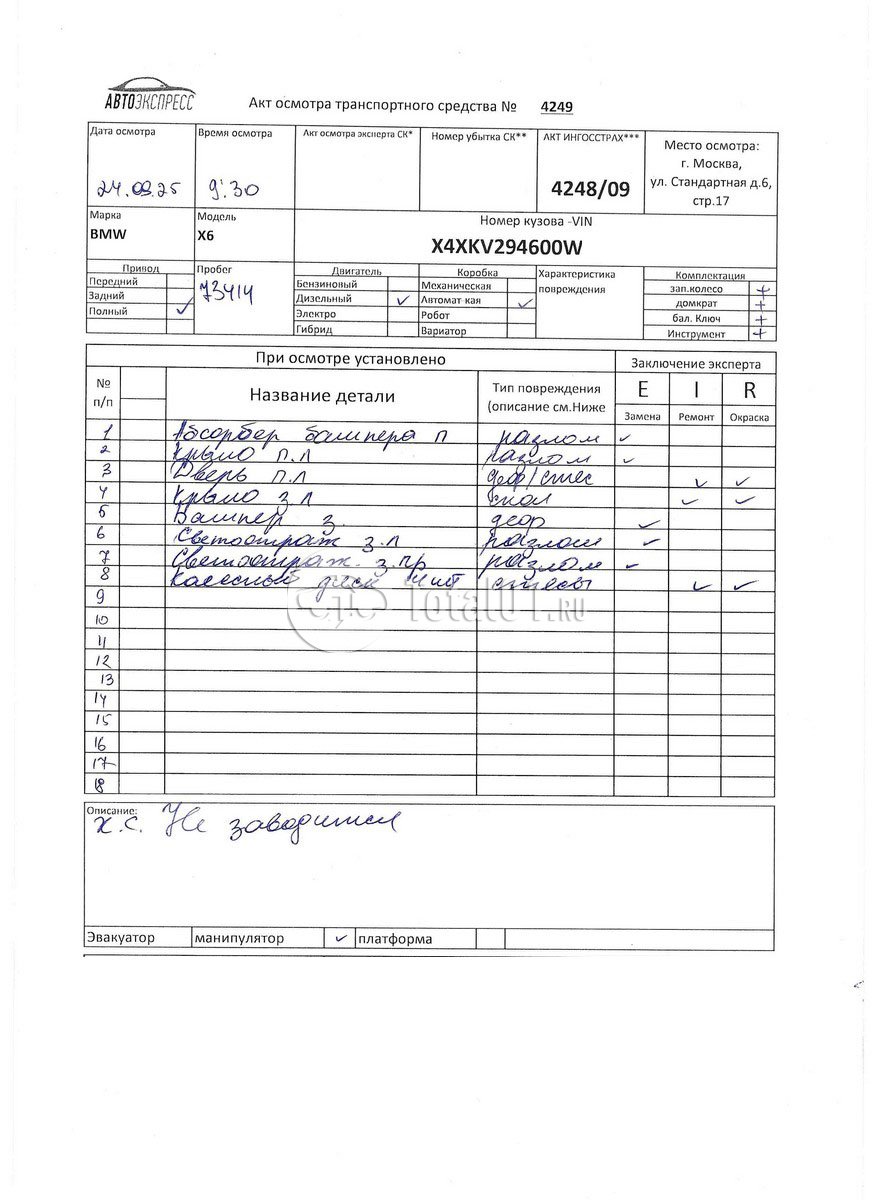 АВТОЭКСПРЕСС
Акт осмотра транспортного средства № 4249
Дата осмотра
Время осмотра
Акт осмотра эксперта СК*
Номер убытка СК**
АКТ ИНГОССТРАХ***
Место осмотра:
г. Москва,
ул. Стандартная д.6,
стр.17
24.09.25
9:30
4248/09
Марка
BMW
Модель
X6
Номер кузова -VIN
X4XKV294600W
Привод
Передний
Задний
Полный ✓
Пробег
73414
Двигатель
Бензиновый
Дизельный ✓
Электро
Гибрид
Коробка
Механическая
Автомат кая ✓
Робот
Вариатор
Характеристика
повреждения
Комплектация
зап.колесо +
домкрат +
бал. Ключ +
Инструмент +
При осмотре установлено
Заключение эксперта
№
п/п
Название детали
Тип повреждения
(описание см.Ниже
E I R
Замена Ремонт Окраска
1 Абсорбер бампера п разлом ✓
2 Крыло п.л разлом ✓
3 Дверь п.л деф/стес ✓ ✓
4 Крыло з.л скол ✓ ✓
5 Бампер з. деф ✓
6 Светоотраж з.л разлом ✓
7 Светоотраж. з.пр разлом ✓
8 Колесный диск 4шт стесы ✓ ✓
9
10
11
12
13
14
15
16
17
18
Total01.RU
Описание:
х.с. Не заводится
Эвакуатор манипулятор ✓ платформа